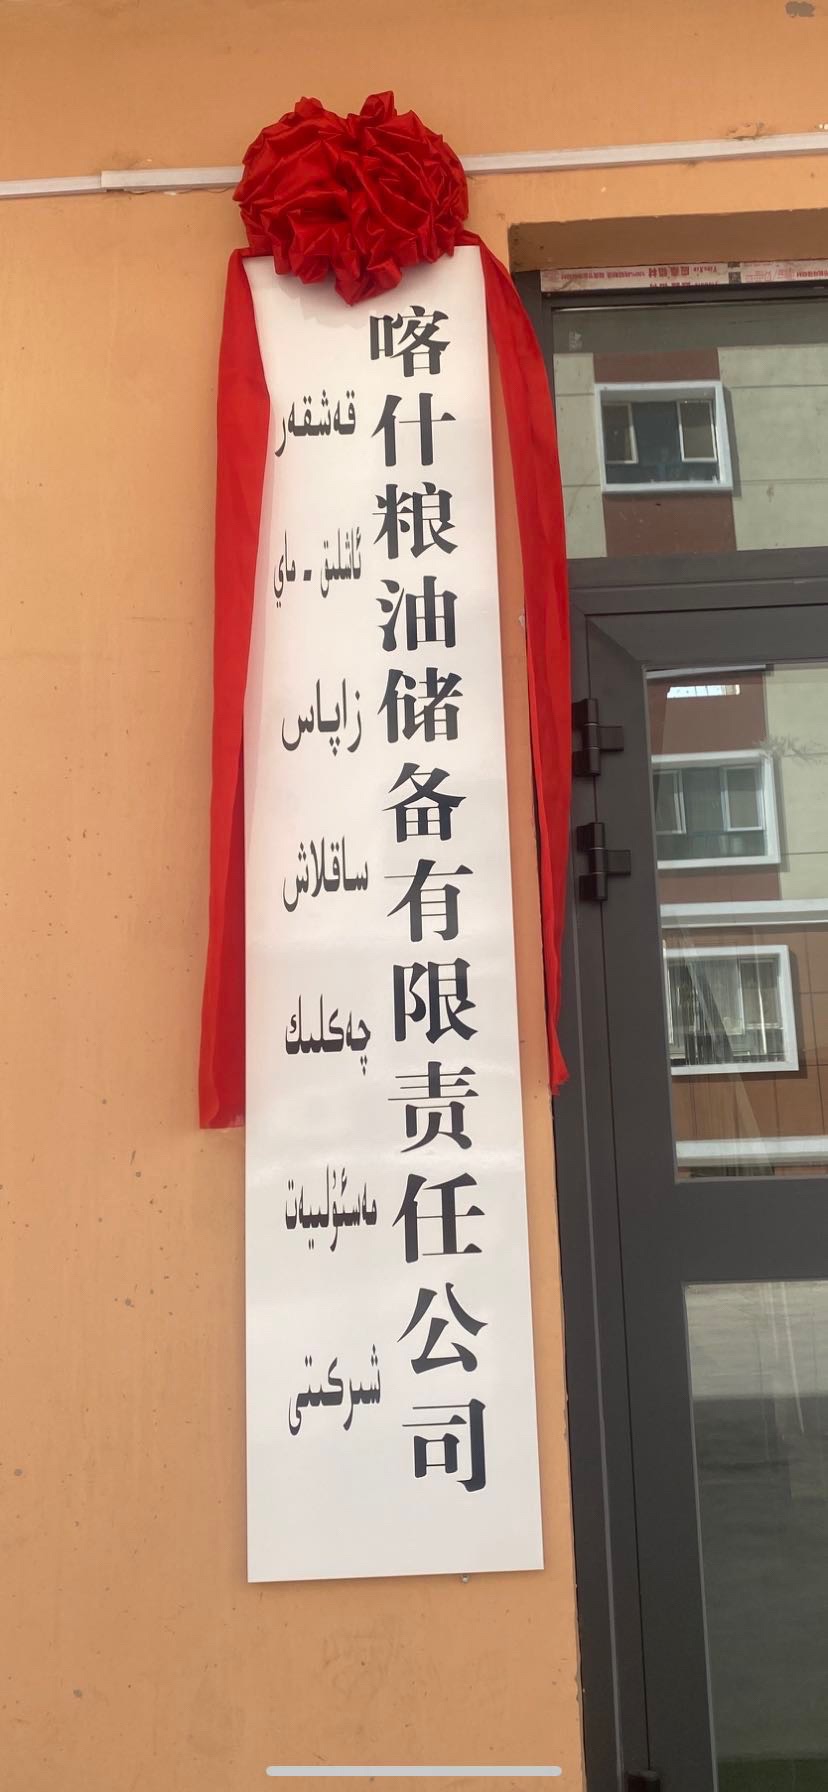 喀什粮油储备有限责任公司
قەشقەر
ئاشلىق - ماي
زاپاس
ساقلاش
چەكلىك
مەسئۇلىيەت
شىركىتى